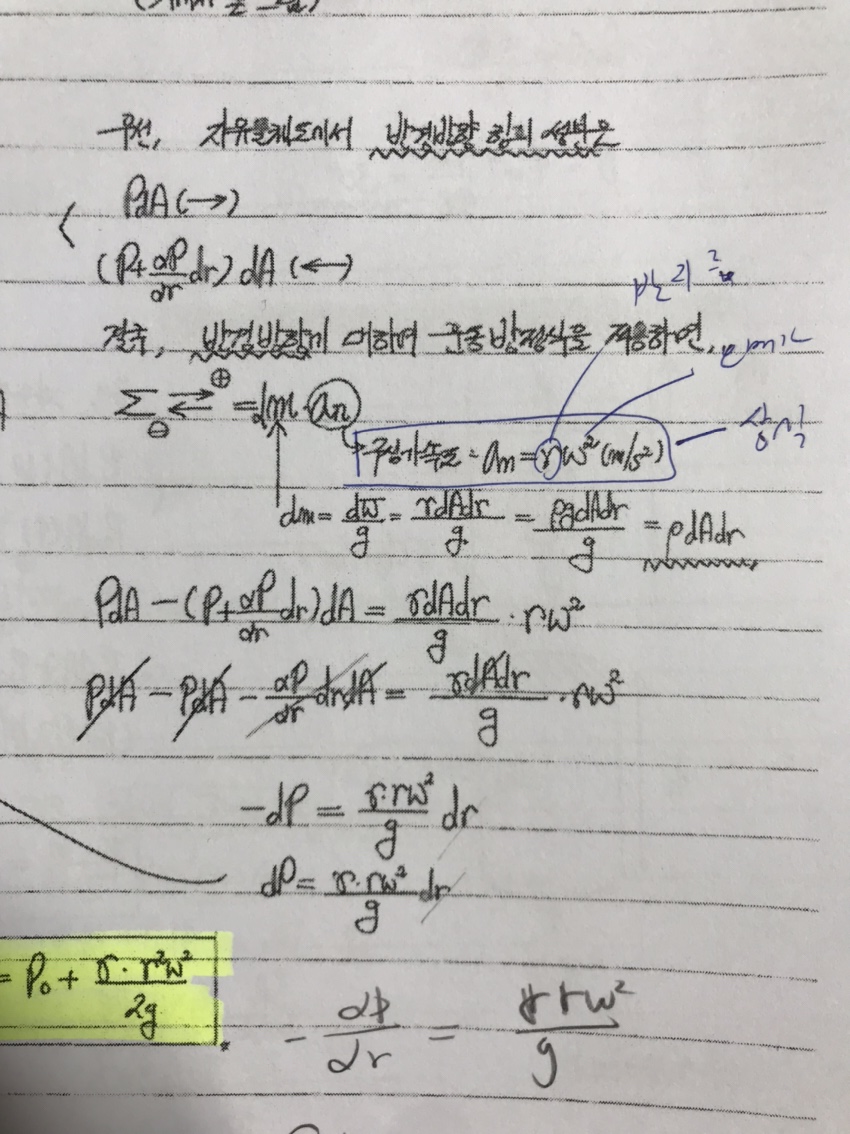 우선, 자유물체도에서 반경방향 힘의 성분은
PdA (→)
(P+∂P/∂r dr) dA (←)
반지름
결국, 반경방향에 대하여 운동방정식을 적용하면,
Σ ⇄ ⊕ ⊖ = dm · an
구심가속도 = an = rω² (m/s²)
dm = dW/g = γdAdr/g = ρgdAdr/g = ρdAdr
PdA − (P+∂P/∂r dr)dA = γdAdr/g · rω²
PdA − PdA − ∂P/∂r drdA = γdAdr/g · rω²
−dP = γ·rω²/g dr
dP = γ·rω²/g dr
= P₀ + γ·r²ω²/2g
− dP/dr = γrω²/g